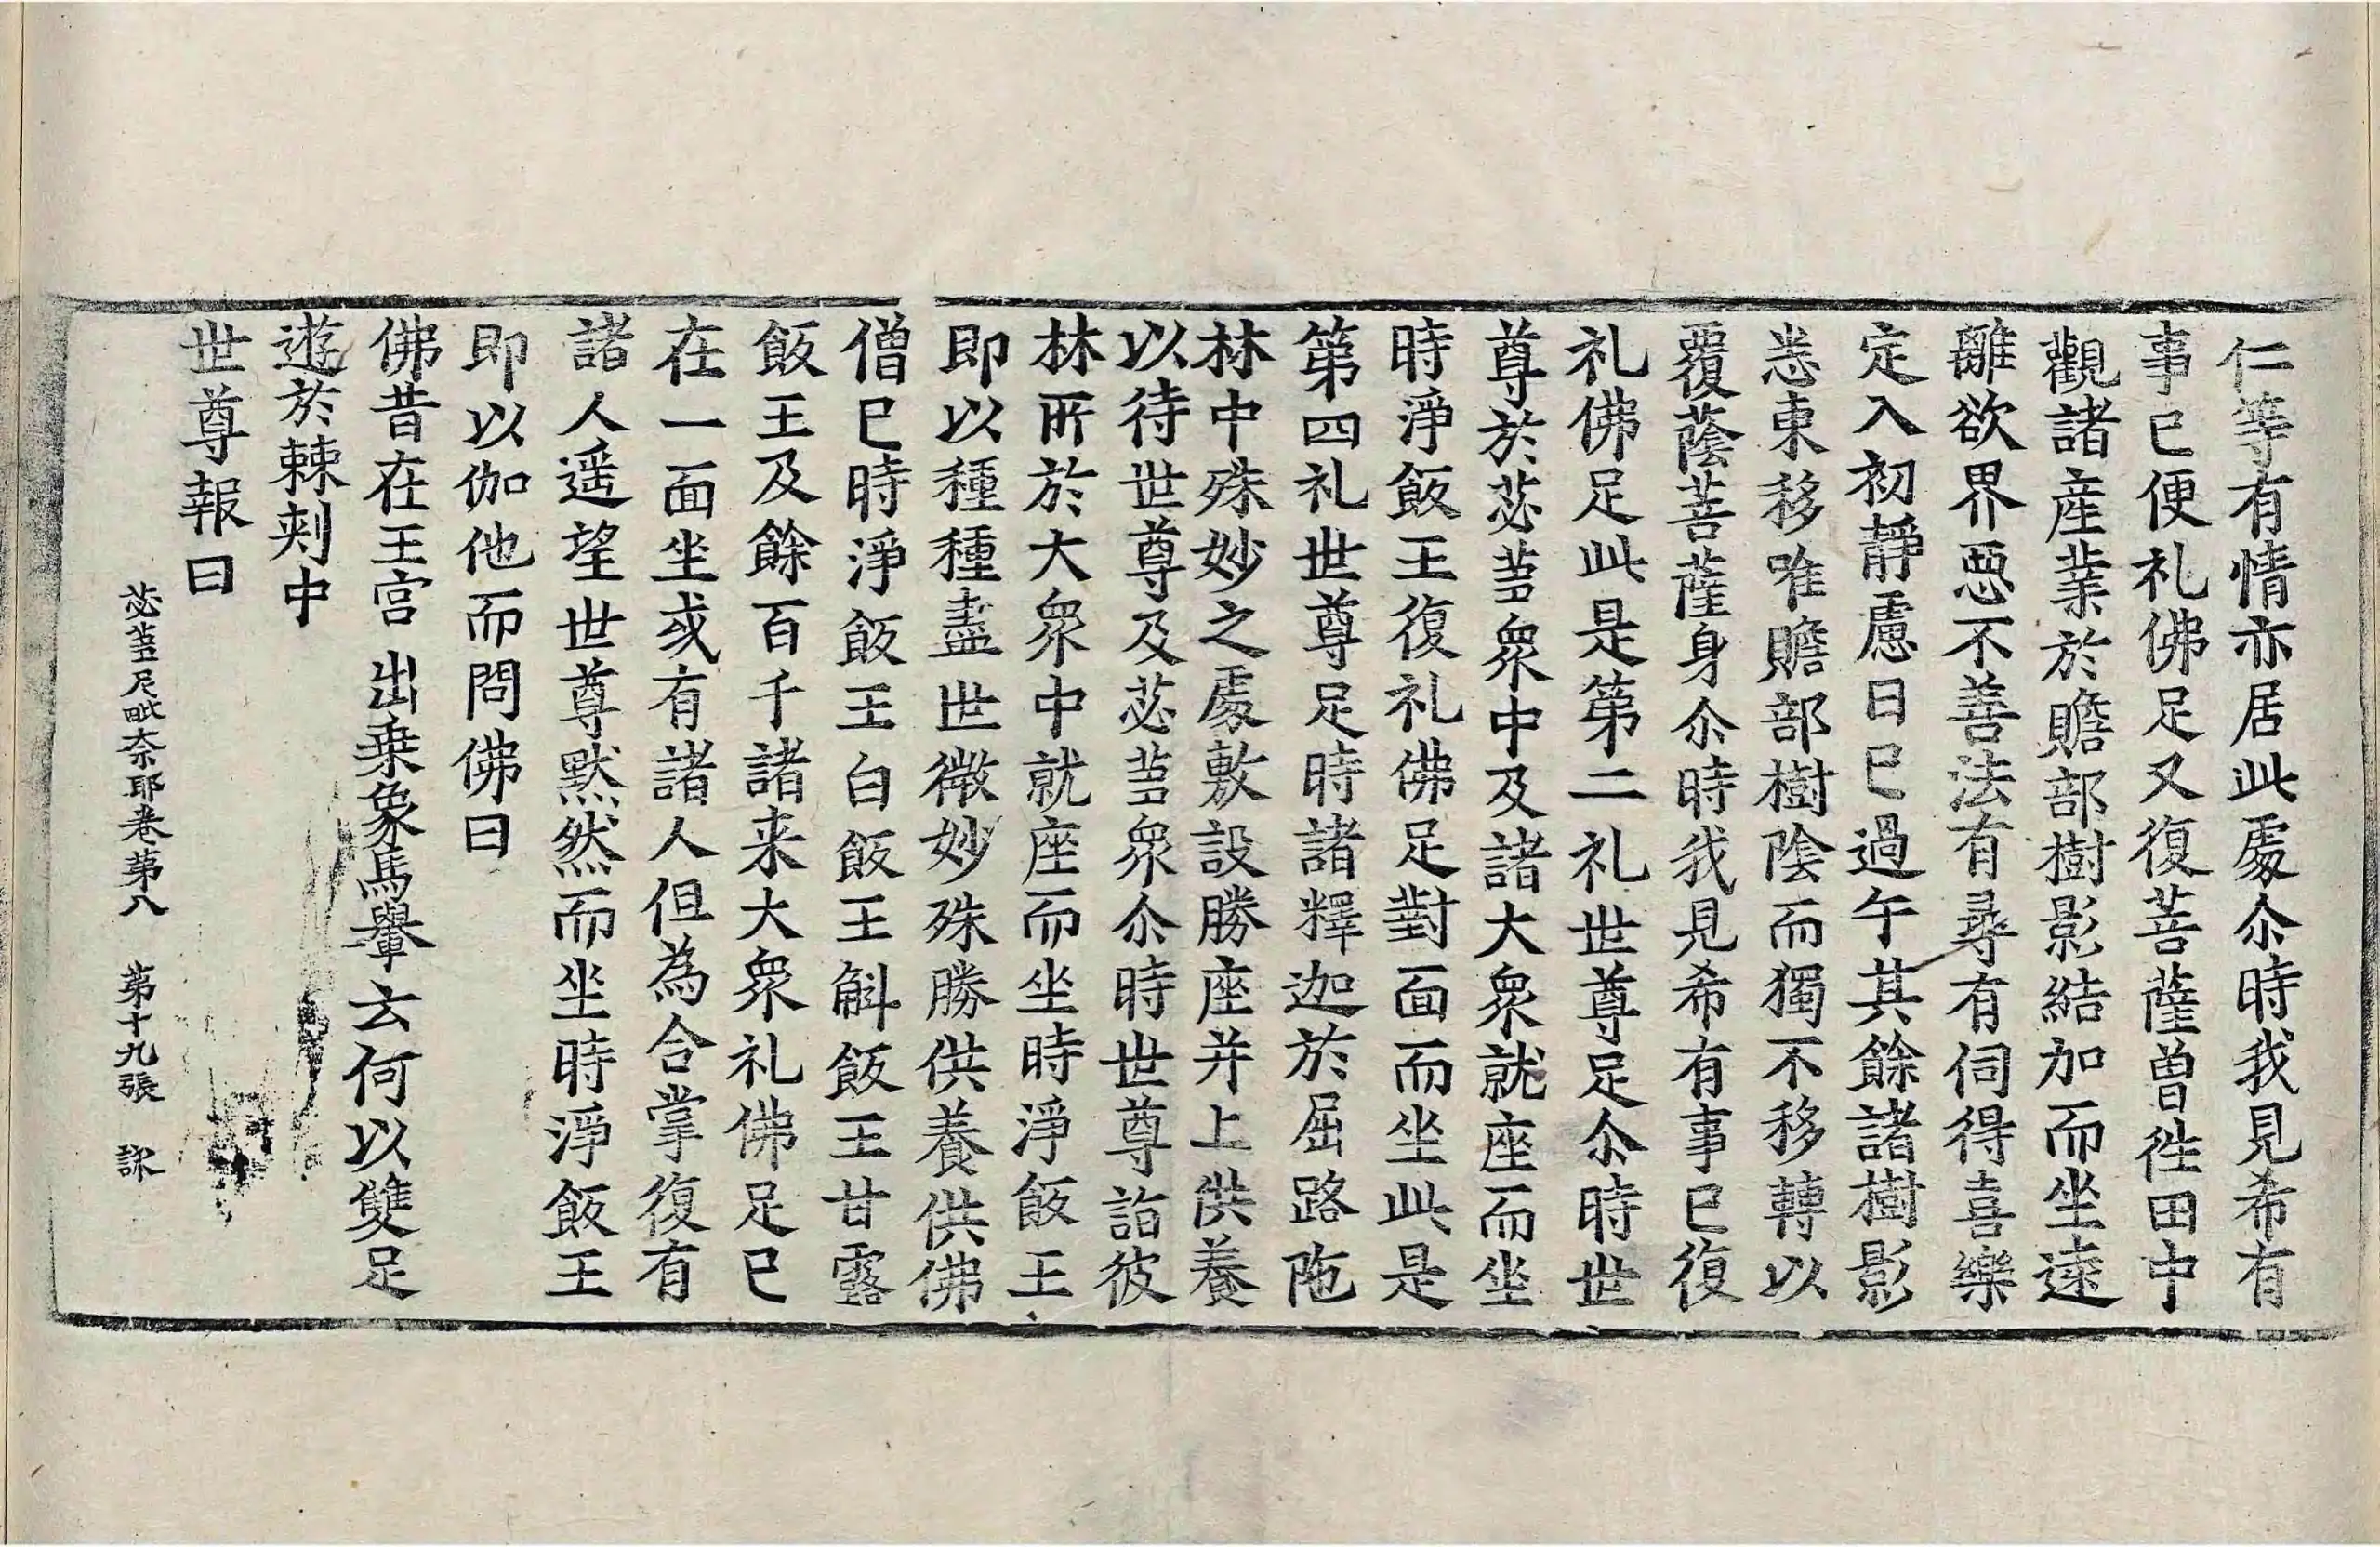 仁等有情亦居此處尒時我見希有
事已便礼佛足又復菩薩曾往田中
觀諸產業於贍部樹影結加而坐遠
離欲界惡不善法有尋有伺得喜樂
定入初靜慮日已過午其餘諸樹影
悉東移唯贍部樹陰而獨不移轉以
覆蔭菩薩身尒時我見希有事已復
礼佛足此是第二礼世尊足尒時世
尊於苾蒭衆中及諸大衆就座而坐
時淨飯王復礼佛足對面而坐此是
第四礼世尊足時諸釋迦於屈路陁
林中殊妙之處敷設勝座并上供養
以待世尊及苾蒭衆尒時世尊詣彼
林所於大衆中就座而坐時淨飯王
即以種種盡世微妙殊勝供養供佛
僧已時淨飯王白飯王斛飯王甘露
飯王及餘百千諸来大衆礼佛足已
在一面坐或有諸人但為合掌復有
諸人遥望世尊默然而坐時淨飯王
即以伽他而問佛曰
佛昔在王宮 出乗象馬轝 云何以雙足
遊於棘刺中
世尊報曰
苾蒭尼毗奈耶卷第八 第十九張 訸